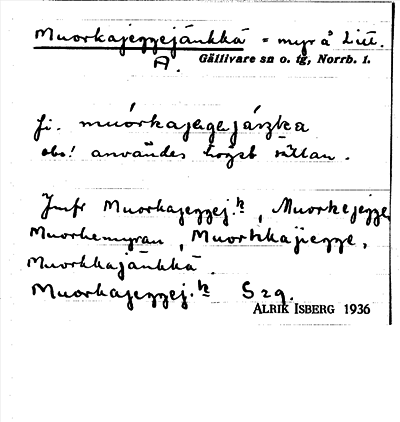 Muorkajeggejánkká = myr å Litt.
A. Gällivare sn o. tg, Norrb. l.
fi. muórkajegejáŋka
obs! användes högst sällan.
Jmfr Muorkajeggej.k, Muorkejegge,
Muorkemyran, Muorhkajiegge,
Muorkkajánkká.
Muorkajeggej.k S 29.
ALRIK ISBERG 1936